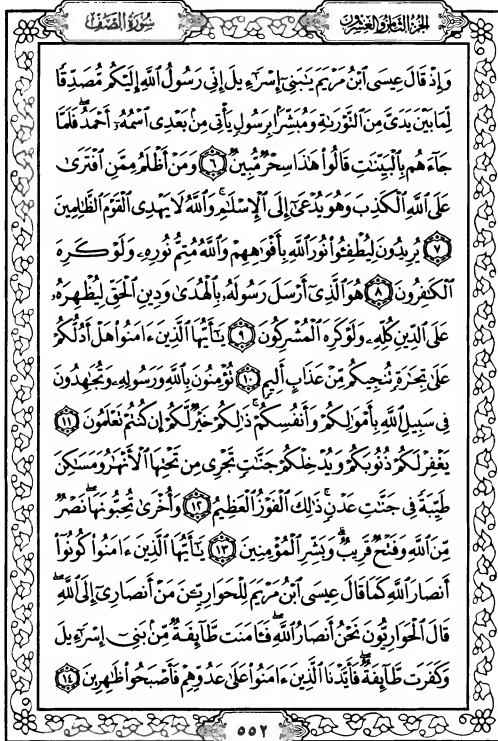 سُورَةُ الصَّفِّ
الجُزْءُ الثَّامِنُ وَالعِشْرُونَ
وَإِذْ قَالَ عِيسَى ٱبْنُ مَرْيَمَ يَٰبَنِىٓ إِسْرَٰٓءِيلَ إِنِّى رَسُولُ ٱللَّهِ إِلَيْكُم مُّصَدِّقًا
لِّمَا بَيْنَ يَدَىَّ مِنَ ٱلتَّوْرَىٰةِ وَمُبَشِّرًۢا بِرَسُولٍ يَأْتِى مِنۢ بَعْدِى ٱسْمُهُۥٓ أَحْمَدُ ۖ فَلَمَّا
جَآءَهُم بِٱلْبَيِّنَٰتِ قَالُوا۟ هَٰذَا سِحْرٌ مُّبِينٌ ٦ وَمَنْ أَظْلَمُ مِمَّنِ ٱفْتَرَىٰ
عَلَى ٱللَّهِ ٱلْكَذِبَ وَهُوَ يُدْعَىٰٓ إِلَى ٱلْإِسْلَٰمِ ۚ وَٱللَّهُ لَا يَهْدِى ٱلْقَوْمَ ٱلظَّٰلِمِينَ
٧ يُرِيدُونَ لِيُطْفِـُٔوا۟ نُورَ ٱللَّهِ بِأَفْوَٰهِهِمْ وَٱللَّهُ مُتِمُّ نُورِهِۦ وَلَوْ كَرِهَ
ٱلْكَٰفِرُونَ ٨ هُوَ ٱلَّذِىٓ أَرْسَلَ رَسُولَهُۥ بِٱلْهُدَىٰ وَدِينِ ٱلْحَقِّ لِيُظْهِرَهُۥ
عَلَى ٱلدِّينِ كُلِّهِۦ وَلَوْ كَرِهَ ٱلْمُشْرِكُونَ ٩ يَٰٓأَيُّهَا ٱلَّذِينَ ءَامَنُوا۟ هَلْ أَدُلُّكُمْ
عَلَىٰ تِجَٰرَةٍ تُنجِيكُم مِّنْ عَذَابٍ أَلِيمٍ ١٠ تُؤْمِنُونَ بِٱللَّهِ وَرَسُولِهِۦ وَتُجَٰهِدُونَ
فِى سَبِيلِ ٱللَّهِ بِأَمْوَٰلِكُمْ وَأَنفُسِكُمْ ۚ ذَٰلِكُمْ خَيْرٌ لَّكُمْ إِن كُنتُمْ تَعْلَمُونَ ١١
يَغْفِرْ لَكُمْ ذُنُوبَكُمْ وَيُدْخِلْكُمْ جَنَّٰتٍ تَجْرِى مِن تَحْتِهَا ٱلْأَنْهَٰرُ وَمَسَٰكِنَ
طَيِّبَةً فِى جَنَّٰتِ عَدْنٍ ۚ ذَٰلِكَ ٱلْفَوْزُ ٱلْعَظِيمُ ١٢ وَأُخْرَىٰ تُحِبُّونَهَا ۖ نَصْرٌ
مِّنَ ٱللَّهِ وَفَتْحٌ قَرِيبٌ ۗ وَبَشِّرِ ٱلْمُؤْمِنِينَ ١٣ يَٰٓأَيُّهَا ٱلَّذِينَ ءَامَنُوا۟ كُونُوٓا۟
أَنصَارَ ٱللَّهِ كَمَا قَالَ عِيسَى ٱبْنُ مَرْيَمَ لِلْحَوَارِيِّـۧنَ مَنْ أَنصَارِىٓ إِلَى ٱللَّهِ ۖ
قَالَ ٱلْحَوَارِيُّونَ نَحْنُ أَنصَارُ ٱللَّهِ ۖ فَـَٔامَنَت طَّآئِفَةٌ مِّنۢ بَنِىٓ إِسْرَٰٓءِيلَ
وَكَفَرَت طَّآئِفَةٌ ۖ فَأَيَّدْنَا ٱلَّذِينَ ءَامَنُوا۟ عَلَىٰ عَدُوِّهِمْ فَأَصْبَحُوا۟ ظَٰهِرِينَ ١٤
٥٥٢